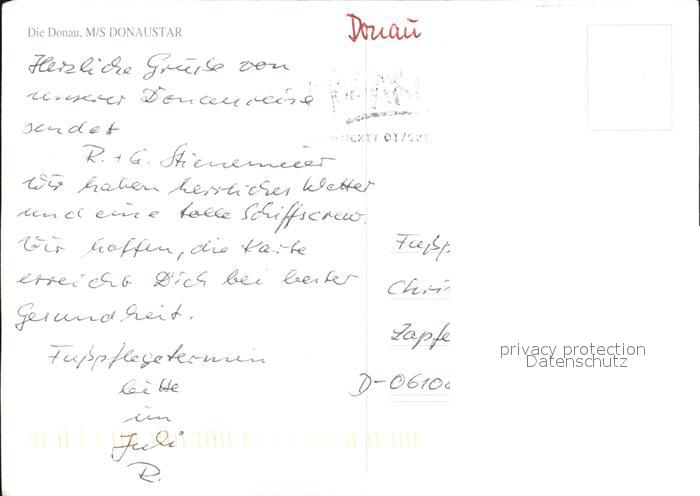 Die Donau, M/S DONAUSTAR
Donau
Herzliche Grüße von
unserer Donaureise
sendet
R. + G. Stienemeier
Wir haben herrliches Wetter
und eine tolle Schiffscrew.
Wir hoffen, die Karte
erreicht Dich bei bester
Gesundheit.
Fußpflegetermin
bitte
im
Juli
R.
Fußp
Chri
Zapfe
D-06108
privacy protection
Datenschutz